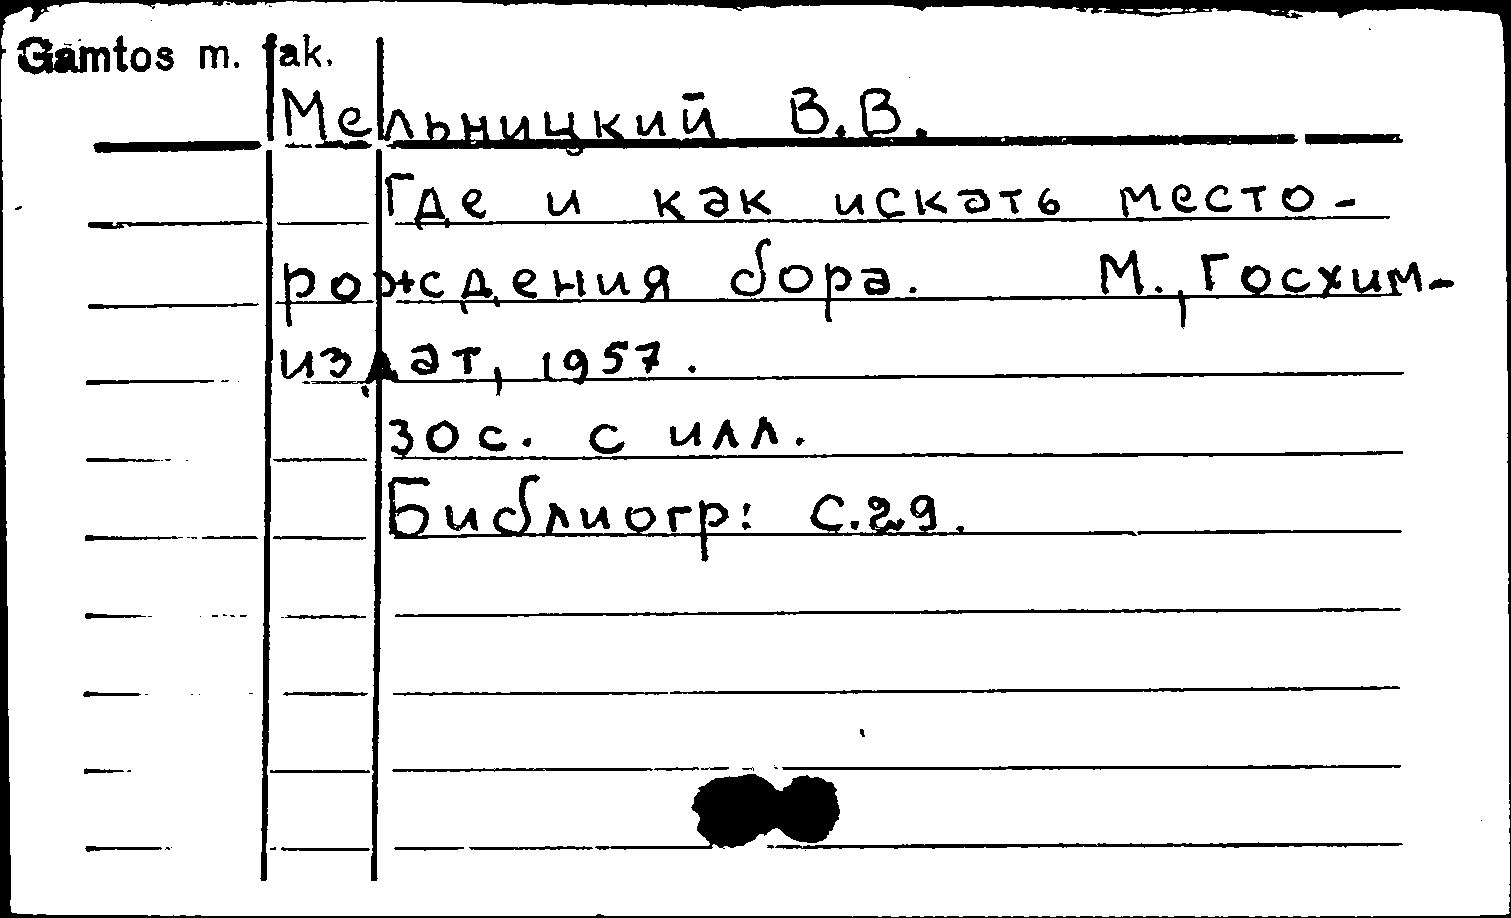 Gamtos m. fak.
Мельницкий В.В.
Где и как искать место-
рождения бора. М., Госхим-
издат, 1957.
30 с. с илл.
Библиогр: с.29.